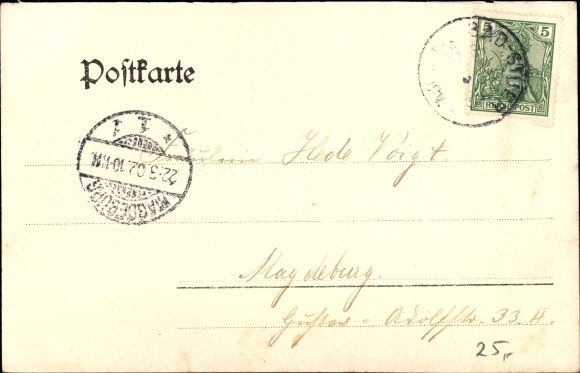 BAD-SUDE
5 5
REICHSPOST
Postkarte
MAGDEBURG
22.3.02.10-11N.
Fräulein Hede Voigt.
Magdeburg.
Gustav-Adolfstr. 33.II.
25,,